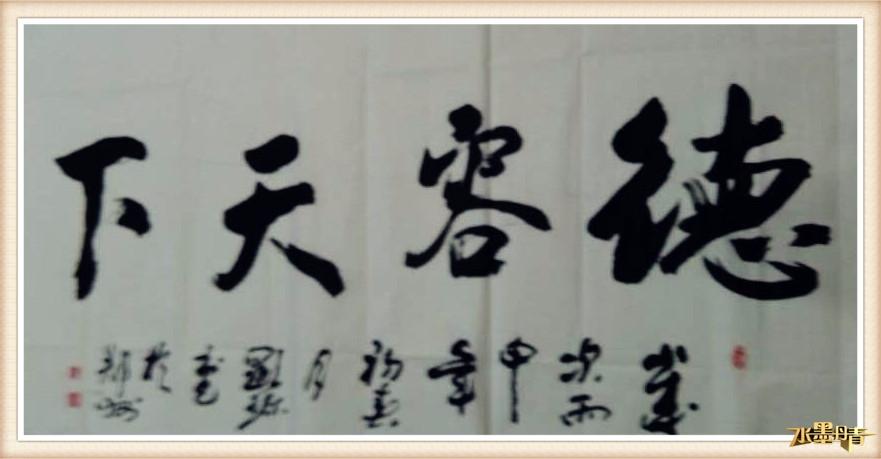 德容天下
岁次丙申年初春月刘
于郑州
水墨晴